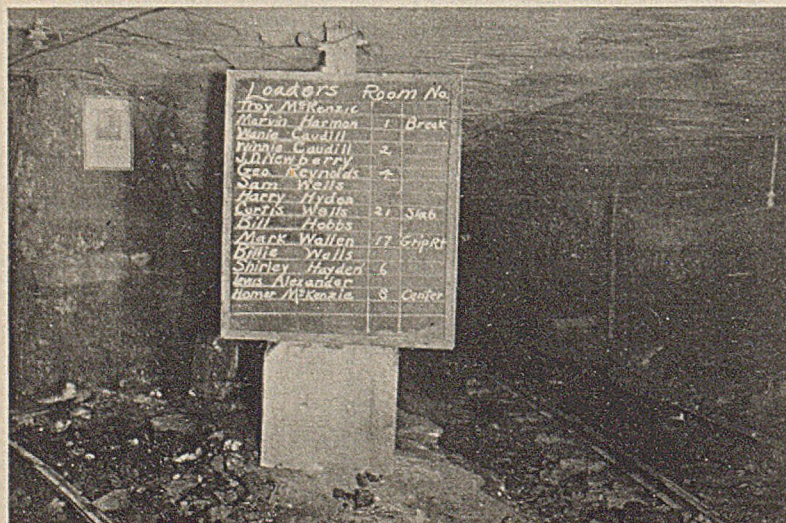 Loaders Room No.
Troy McKenzie
Marvin Harmon 1 Break
Wanie Caudill
Winnie Caudill 2
J.D. Newberry
Geo. Reynolds 4
Sam Wells
Harry Hyden
Curtis Wells 21 Slab
Bill Hobbs
Mark Wallen 17 Grip Rt
Billie Wells
Shirley Hayden 6
Lewis Alexander
Homer McKenzie 8 Center